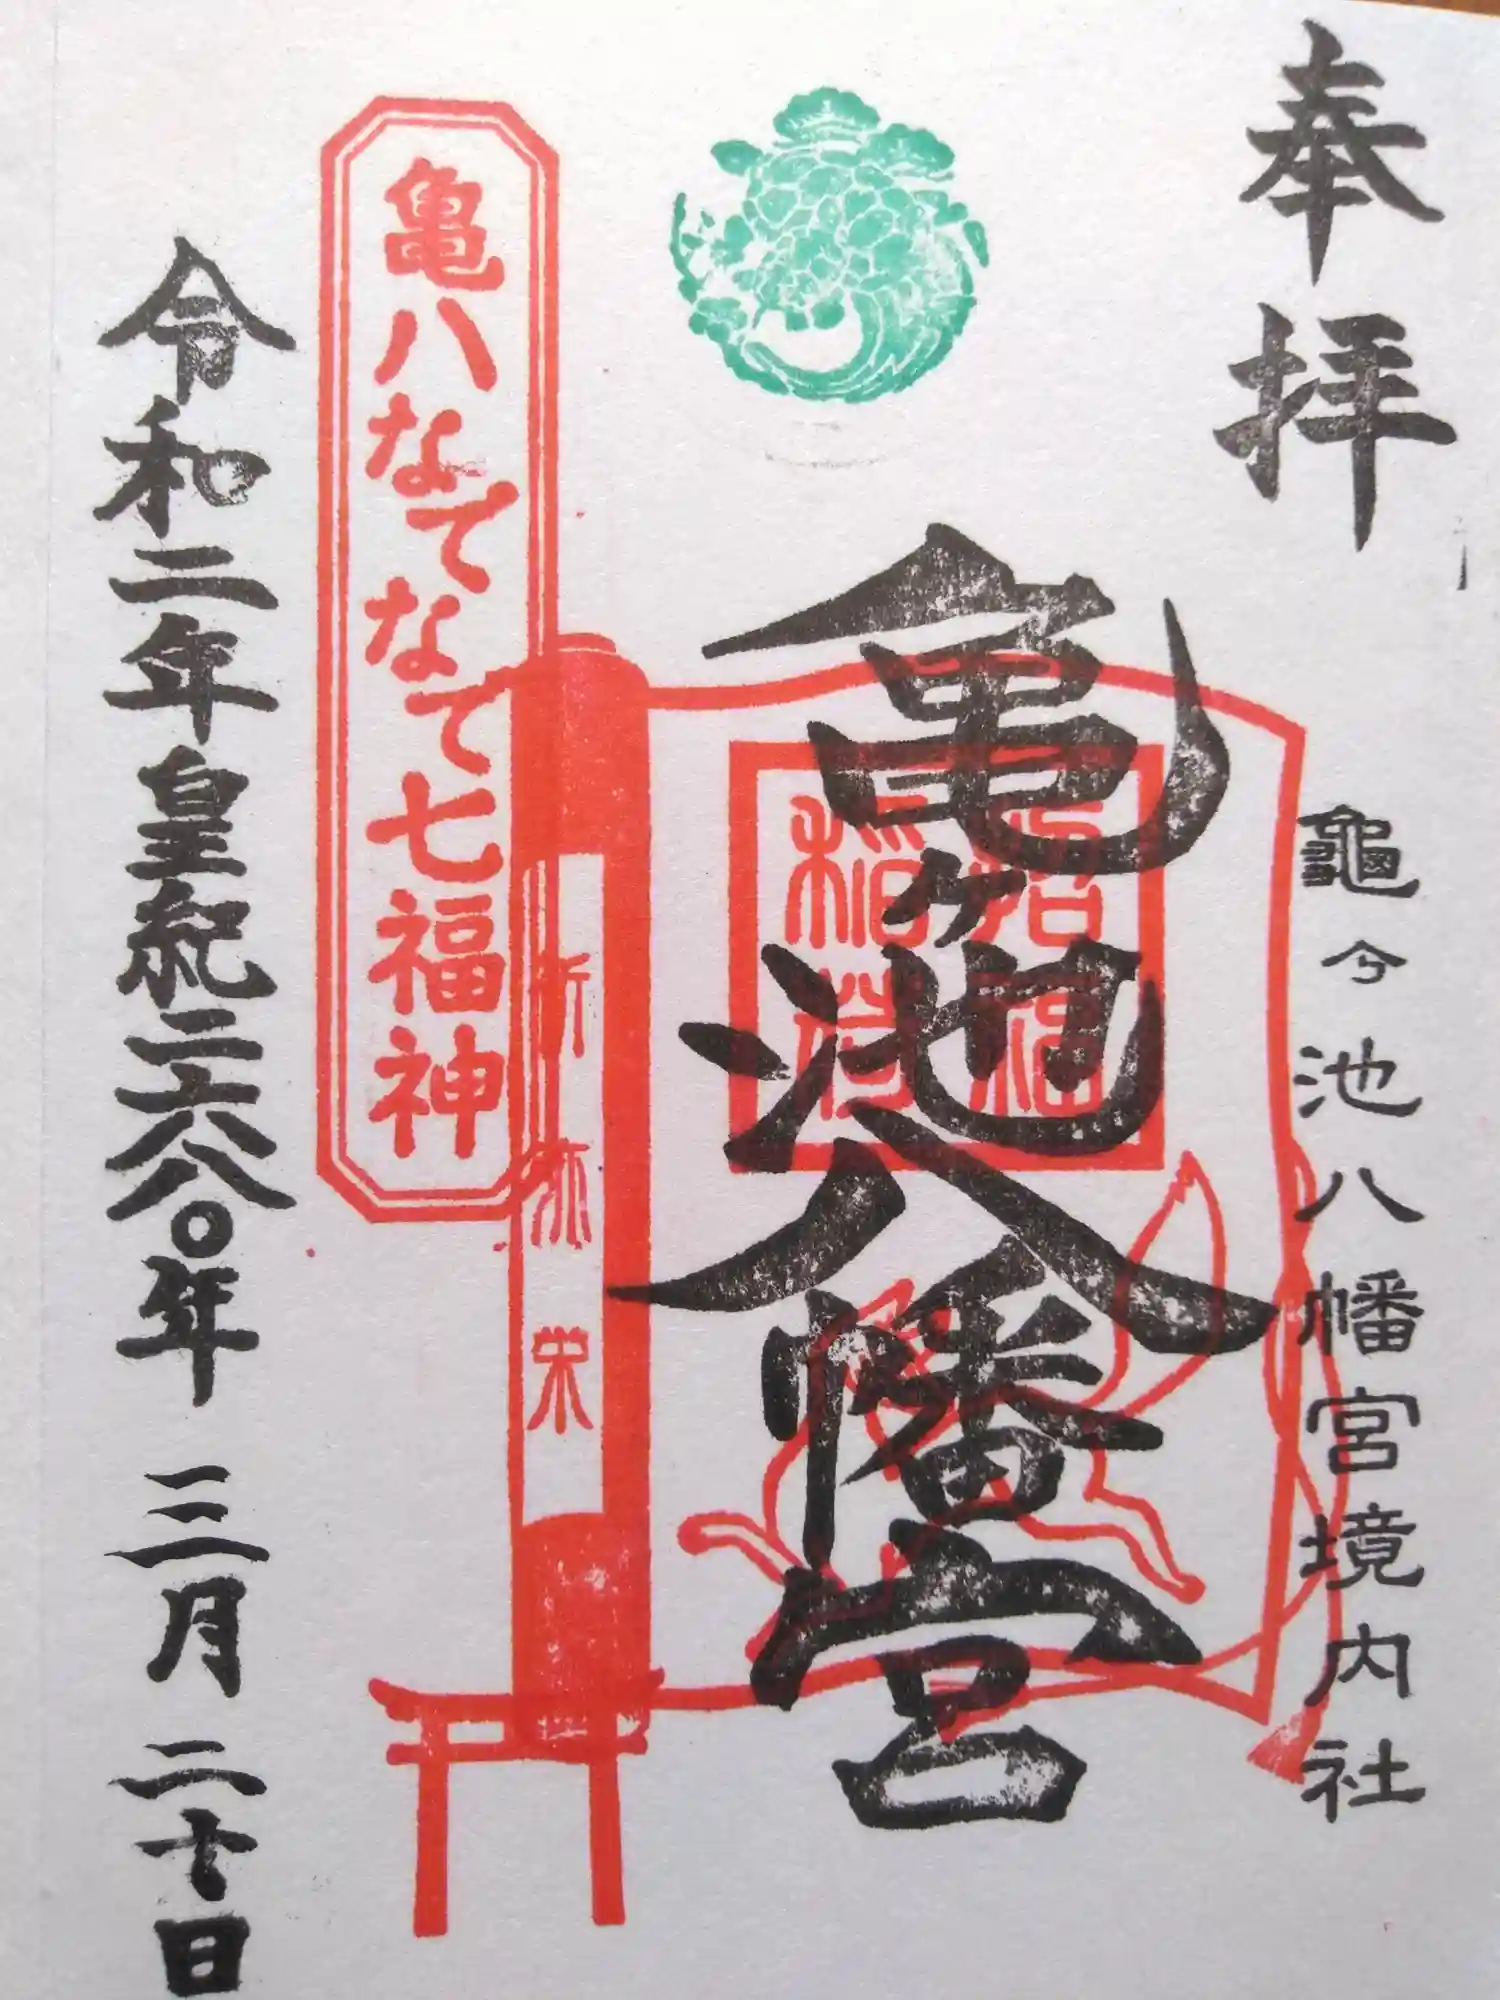 奉拝
龜ヶ池八幡宮境内社
亀ヶ池八幡宮
招福
稲荷
亀八なてなて七福神
令和二年皇紀二六八〇年 三月 二十日